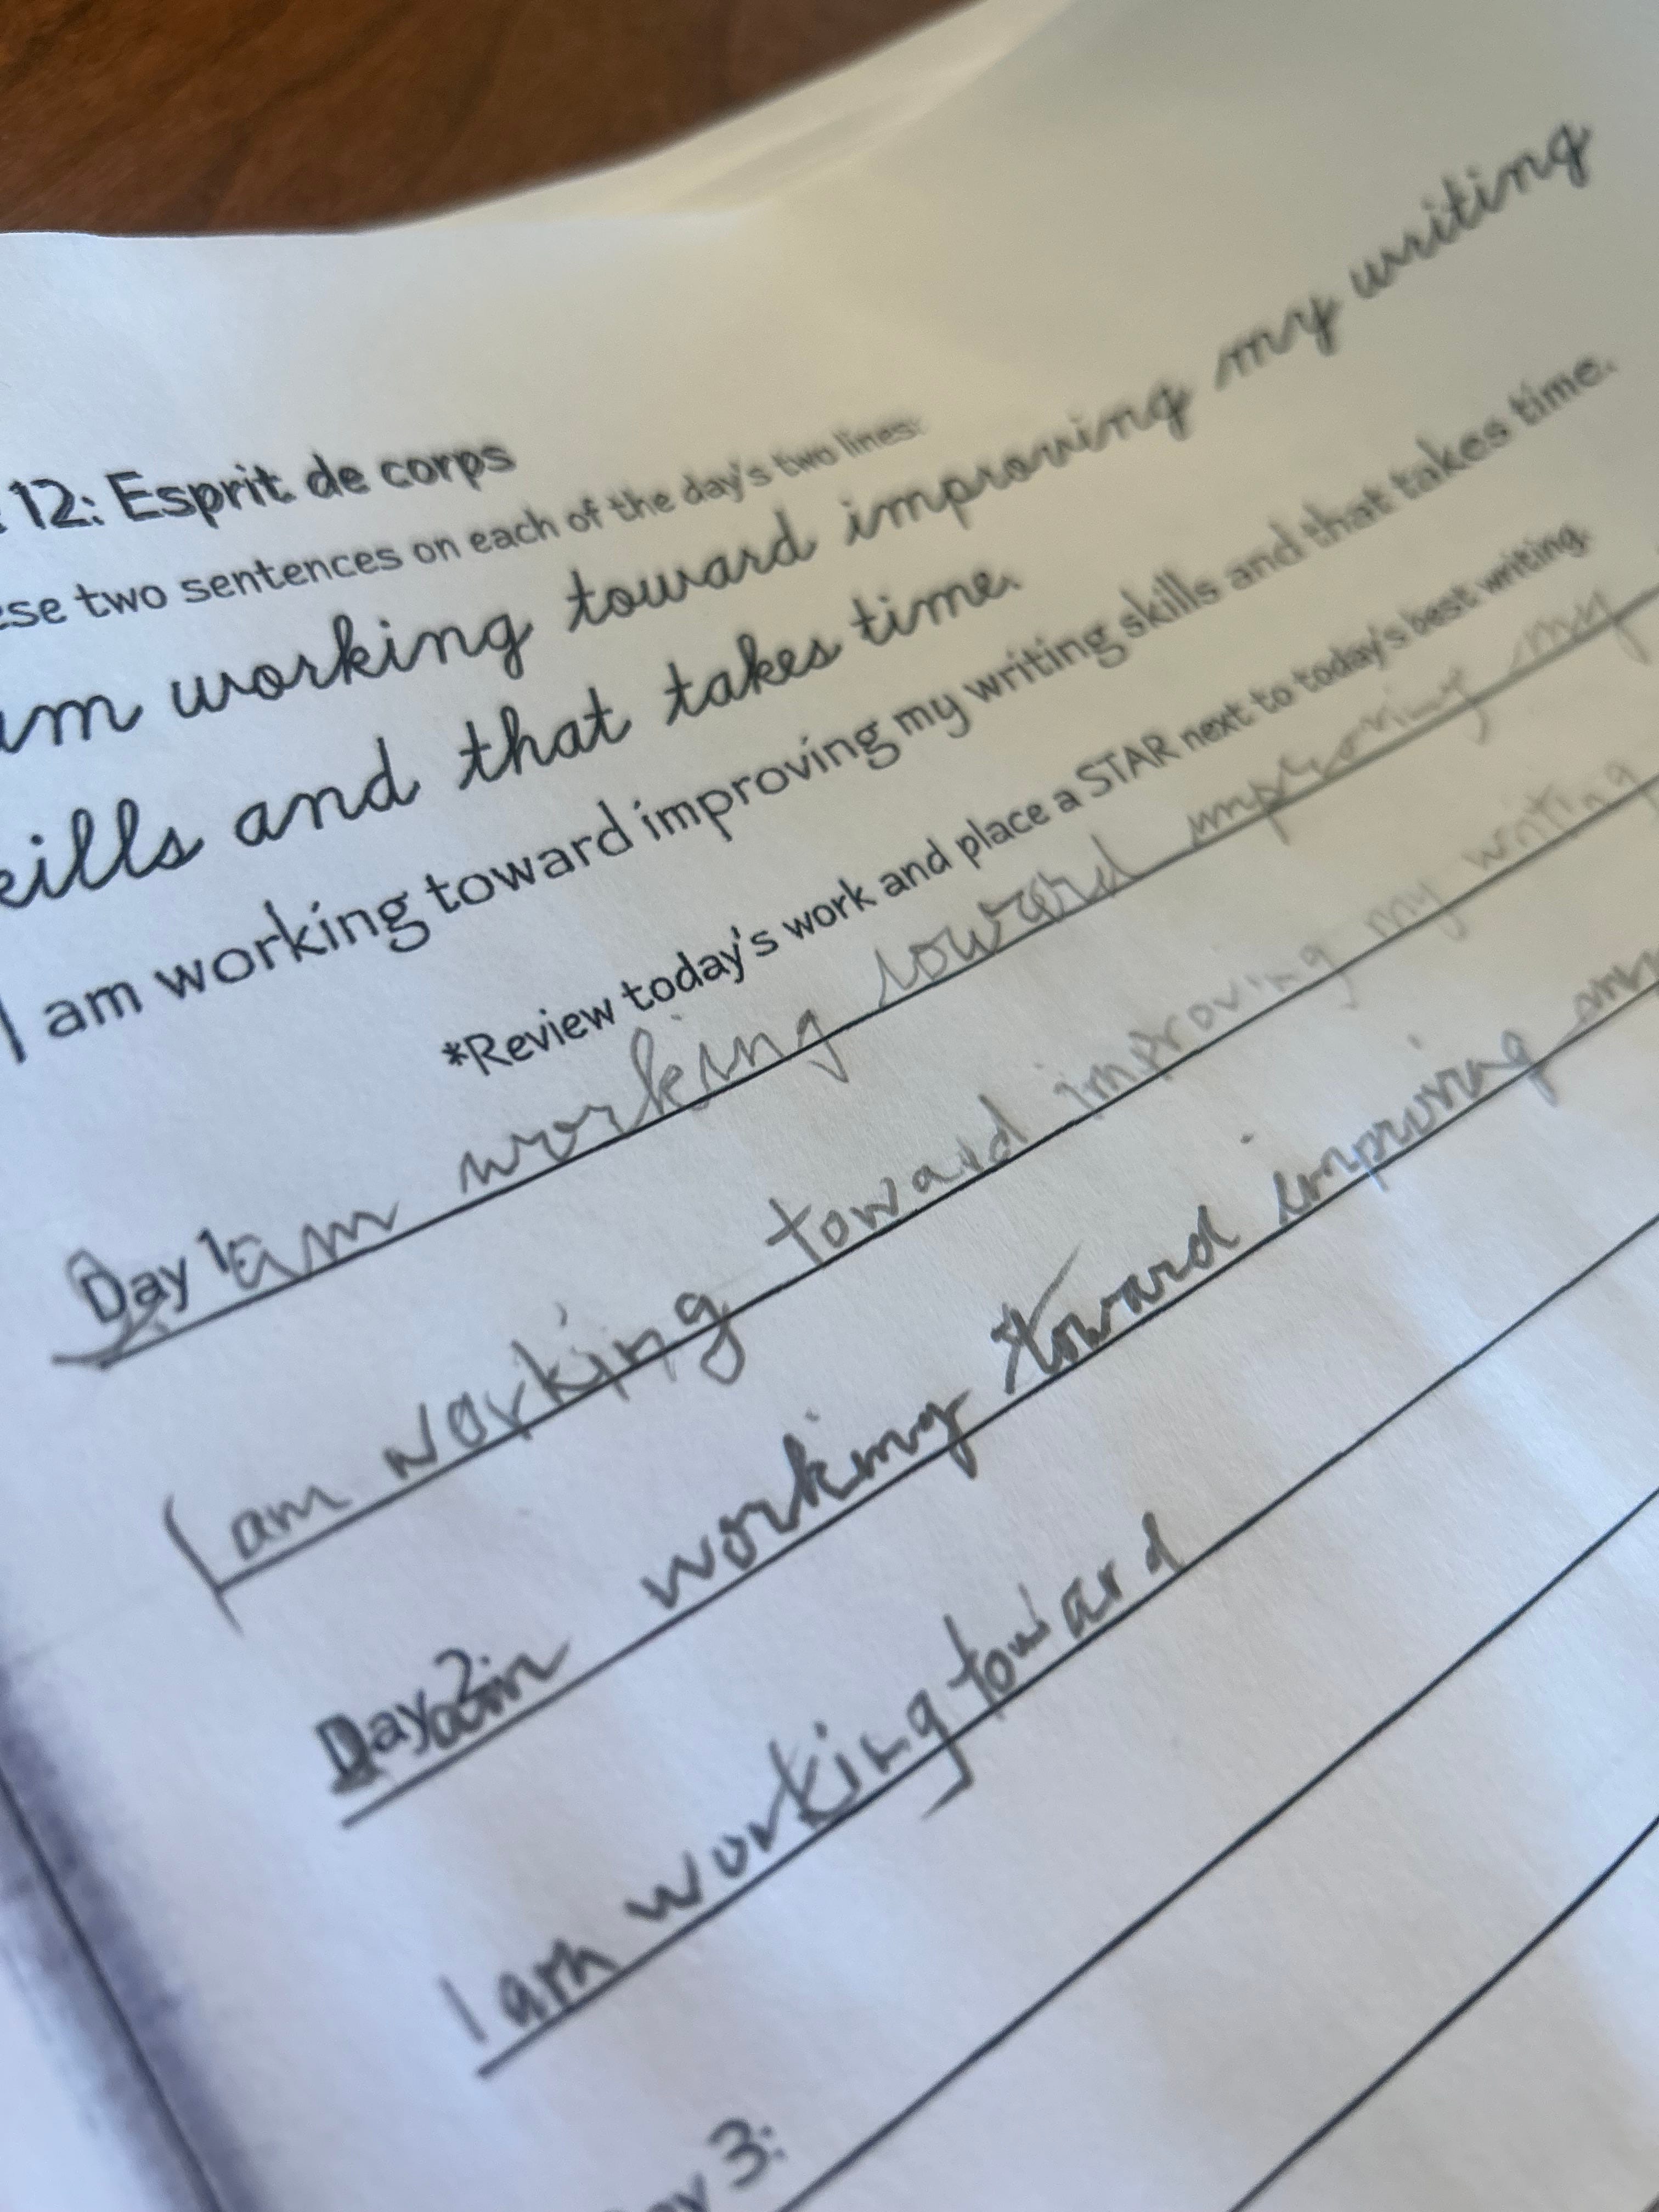 12: Esprit de corps
se two sentences on each of the day's two lines:
am working toward improving my writing
kills and that takes time.
I am working toward improving my writing skills and that takes time.
*Review today's work and place a STAR next to today's best writing.
Day 1: I am working toward improving my
I am working toward improving my writing
Day 2: I am working toward improving my
I am working toward
Day 3: